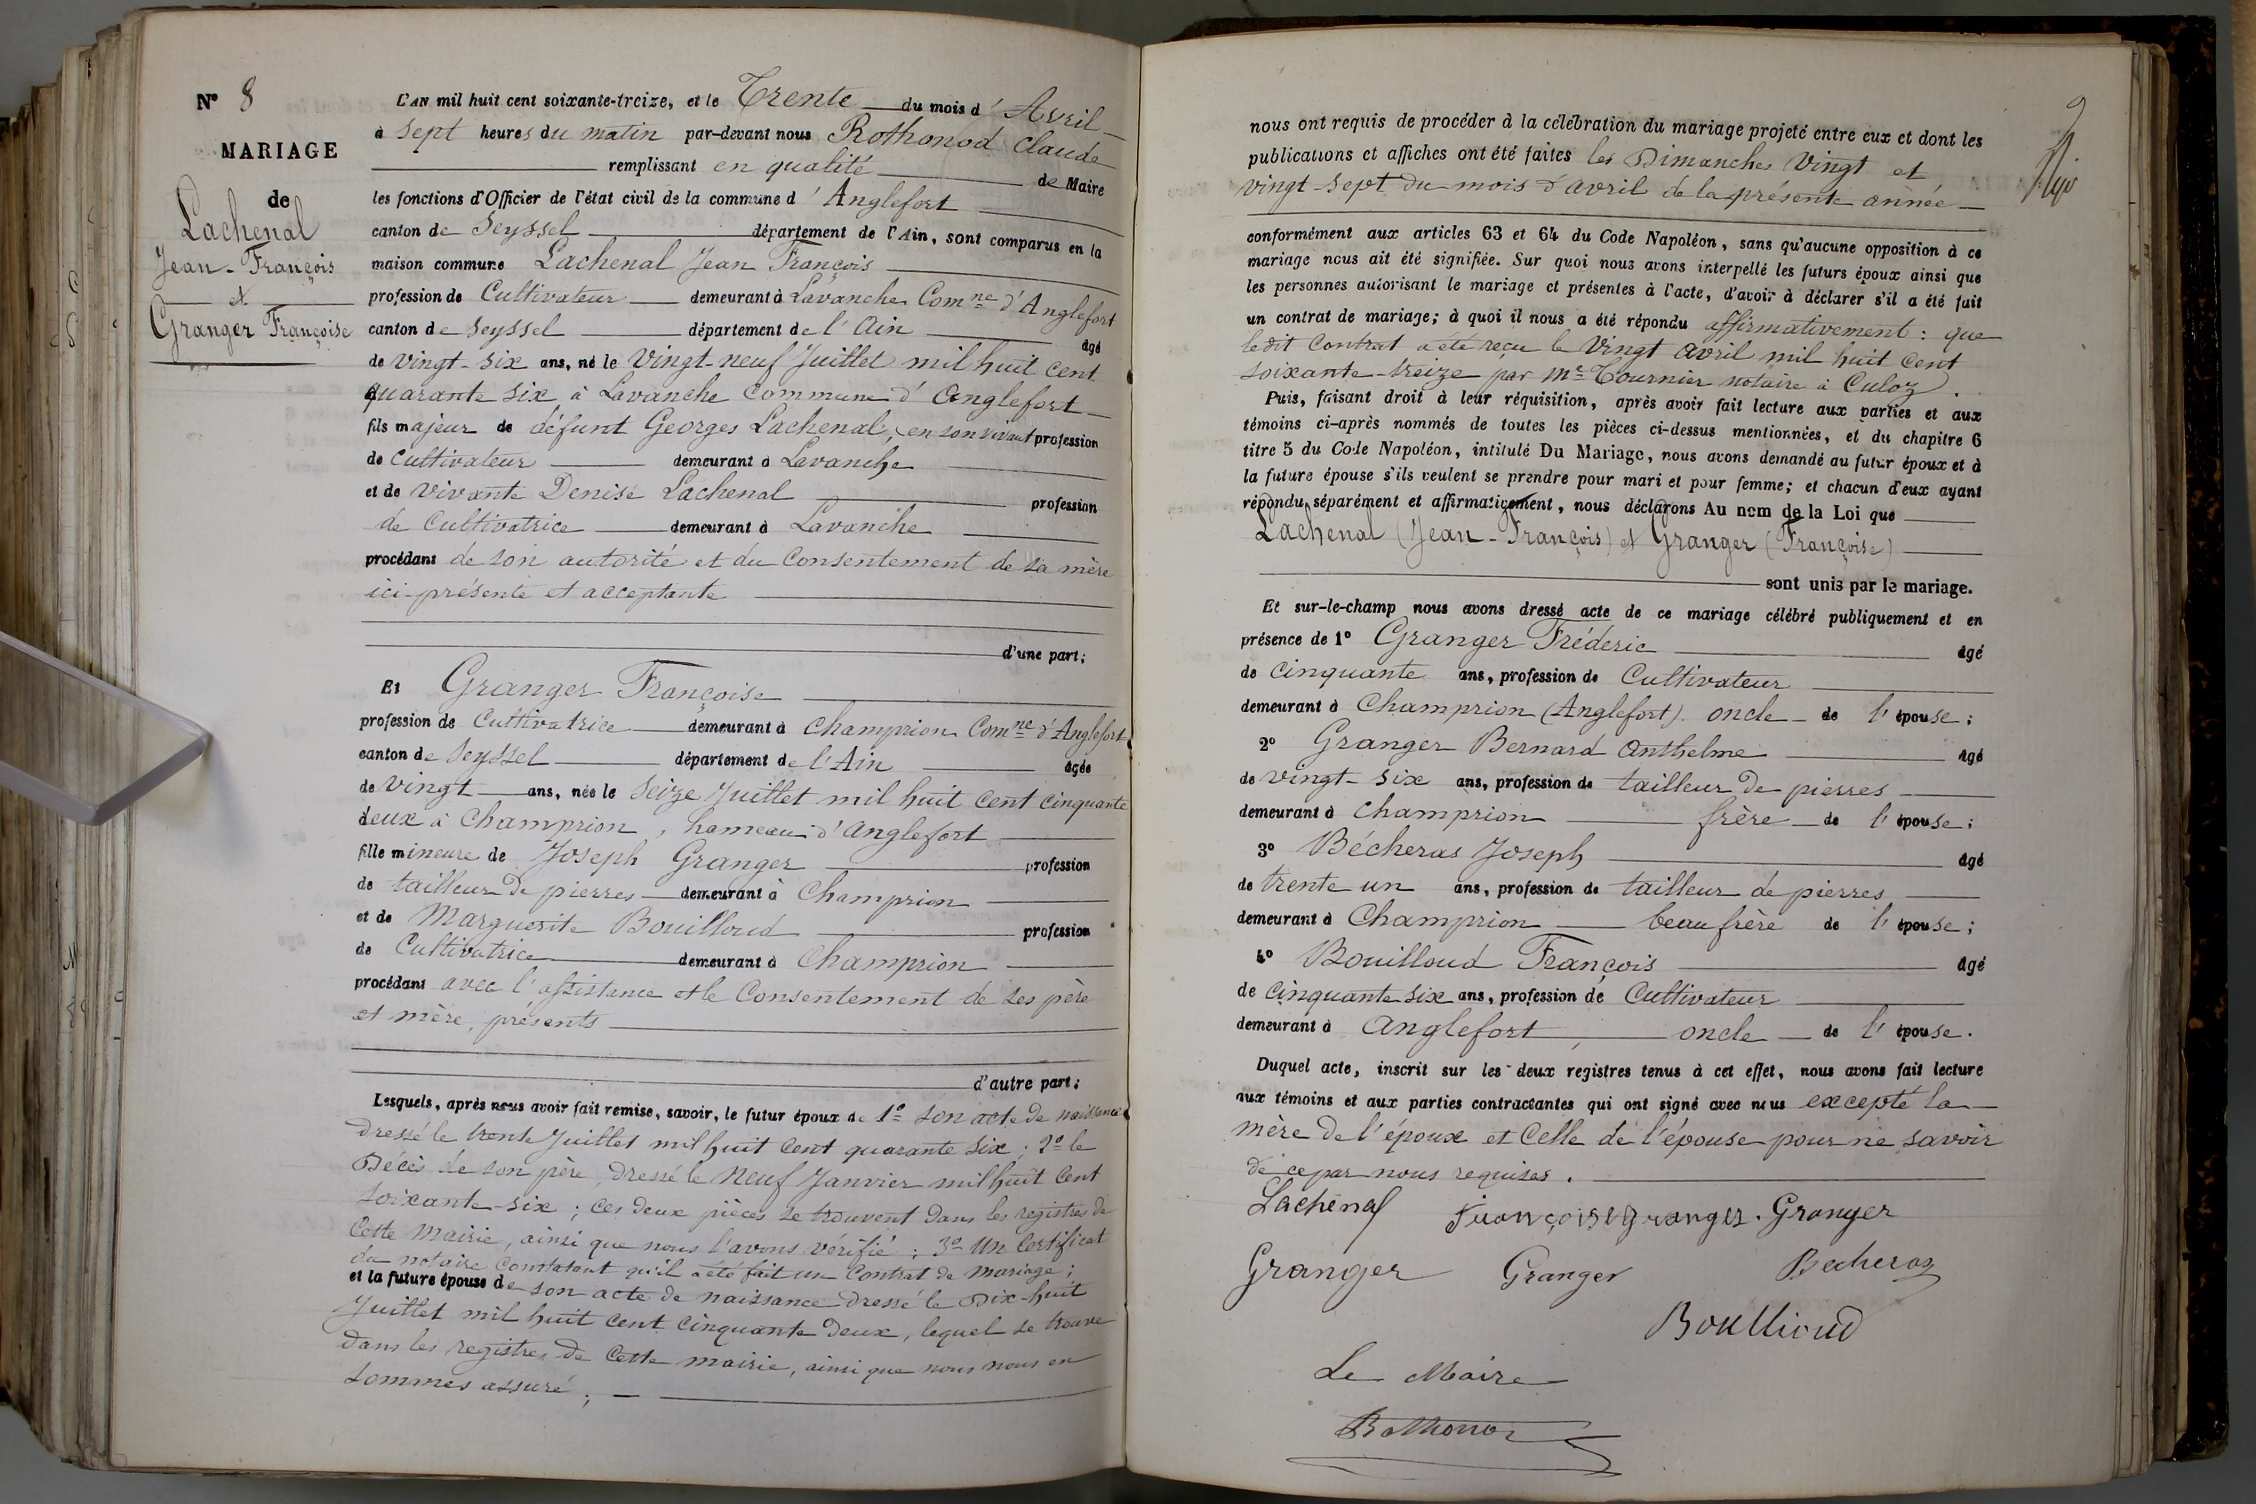 N° 8
MARIAGE
de
Lachenal
Jean-François
et
Granger Françoise
L'AN mil huit cent soixante-treize, et le Trente du mois d'Avril
à sept heures du matin par-devant nous Rothonod Claude
remplissant en qualité de Maire
les fonctions d'Officier de l'état civil de la commune d'Anglefort
canton de Seyssel département de l'Ain, sont comparus en la
maison commune Lachenal Jean François
profession de Cultivateur demeurant à Lavanche Comne d'Anglefort
canton de Seyssel département de l'Ain âgé
de vingt-six ans, né le Vingt-neuf Juillet mil huit cent
quarante six à Lavanche Commune d'Anglefort
fils majeur de défunt Georges Lachenal, en son vivant profession
de Cultivateur demeurant à Lavanche
et de vivante Denise Lachenal profession
de Cultivatrice demeurant à Lavanche
procédant de son autorité et du Consentement de sa mère
ici-présente et acceptante
d'une part;
Et Granger Françoise
profession de Cultivatrice demeurant à Champrion Comne d'Anglefort
canton de Seyssel département de l'Ain âgée
de Vingt ans, née le Seize Juillet mil huit cent cinquante
deux à Champrion, hameau d'Anglefort
fille mineure de Joseph Granger profession
de tailleur de pierres demeurant à Champrion
et de Marguerite Bouilloud profession
de Cultivatrice demeurant à Champrion
procédant avec l'assistance et le Consentement de ses père
et mère, présents
d'autre part;
Lesquels, après nous avoir fait remise, savoir, le futur époux de 1° son acte de naissance
dressé le trente Juillet mil huit cent quarante six; 2° le
Décès de son père, dressé le Neuf Janvier mil huit cent
soixante-six; ces deux pièces se trouvent dans les registres de
cette Mairie, ainsi que nous l'avons vérifié; 3° Un Certificat
du notaire constatant qu'il a été fait un Contrat de mariage;
et la future épouse de son acte de naissance dressé le Dix-huit
Juillet mil huit cent cinquante Deux, lequel se trouve
dans les registres de cette mairie, ainsi que nous nous en
sommes assuré;
9
nous ont requis de procéder à la célébration du mariage projeté entre eux et dont les
publications et affiches ont été faites les Dimanches Vingt et
vingt-sept du mois d'avril de la présente année
conformément aux articles 63 et 64 du Code Napoléon, sans qu'aucune opposition à ce
mariage nous ait été signifiée. Sur quoi nous avons interpellé les futurs époux ainsi que
les personnes autorisant le mariage et présentes à l'acte, d'avoir à déclarer s'il a été fait
un contrat de mariage; à quoi il nous a été répondu affirmativement: que
ledit Contrat a été reçu le Vingt avril mil huit cent
soixante-treize par Me Tournier notaire à Culoz.
Puis, faisant droit à leur réquisition, après avoir fait lecture aux parties et aux
témoins ci-après nommés de toutes les pièces ci-dessus mentionnées, et du chapitre 6
titre 5 du Code Napoléon, intitulé Du Mariage, nous avons demandé au futur époux et à
la future épouse s'ils veulent se prendre pour mari et pour femme; et chacun d'eux ayant
répondu séparément et affirmativement, nous déclarons Au nom de la Loi que
Lachenal (Jean-François) et Granger (Françoise)
sont unis par le mariage.
Et sur-le-champ nous avons dressé acte de ce mariage célébré publiquement et en
présence de 1° Granger Fréderic âgé
de Cinquante ans, profession de Cultivateur
demeurant à Champrion (Anglefort) oncle de l'épouse;
2° Granger Bernard Anthelme âgé
de vingt-six ans, profession de tailleur de pierres
demeurant à Champrion frère de l'épouse;
3° Bécheras Joseph âgé
de trente un ans, profession de tailleur de pierres
demeurant à Champrion beau frère de l'épouse;
4° Bouilloud François âgé
de cinquante six ans, profession de Cultivateur
demeurant à Anglefort, oncle de l'épouse.
Duquel acte, inscrit sur les deux registres tenus à cet effet, nous avons fait lecture
aux témoins et aux parties contractantes qui ont signé avec nous excepté la
mère de l'époux et Celle de l'épouse pour ne savoir
de ce par nous requises.
Lachenal françoise granger. Granger
Granger Granger Becheras
Boullioud
Le Maire
Rothonod